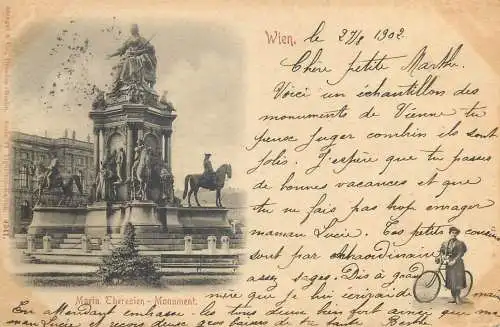 Wien. le 27/8 1902
Chère petite Marthe.
Voici un échantillon des
monuments de Vienne tu
peux juger combien ils sont
jolis. J'espère que tu passes
de bonnes vacances et que
tu ne fais pas trop enrager
maman Lucie. Tes petits cousins
sont par extraordinaire
assez sages. Dis à grand
mère que je lui écrirai
Maria Theresien-Monument.
En attendant embrasse les tous deux bien fort ainsi que
Lucie et reçois deux gros baisers de ta tante Berthe